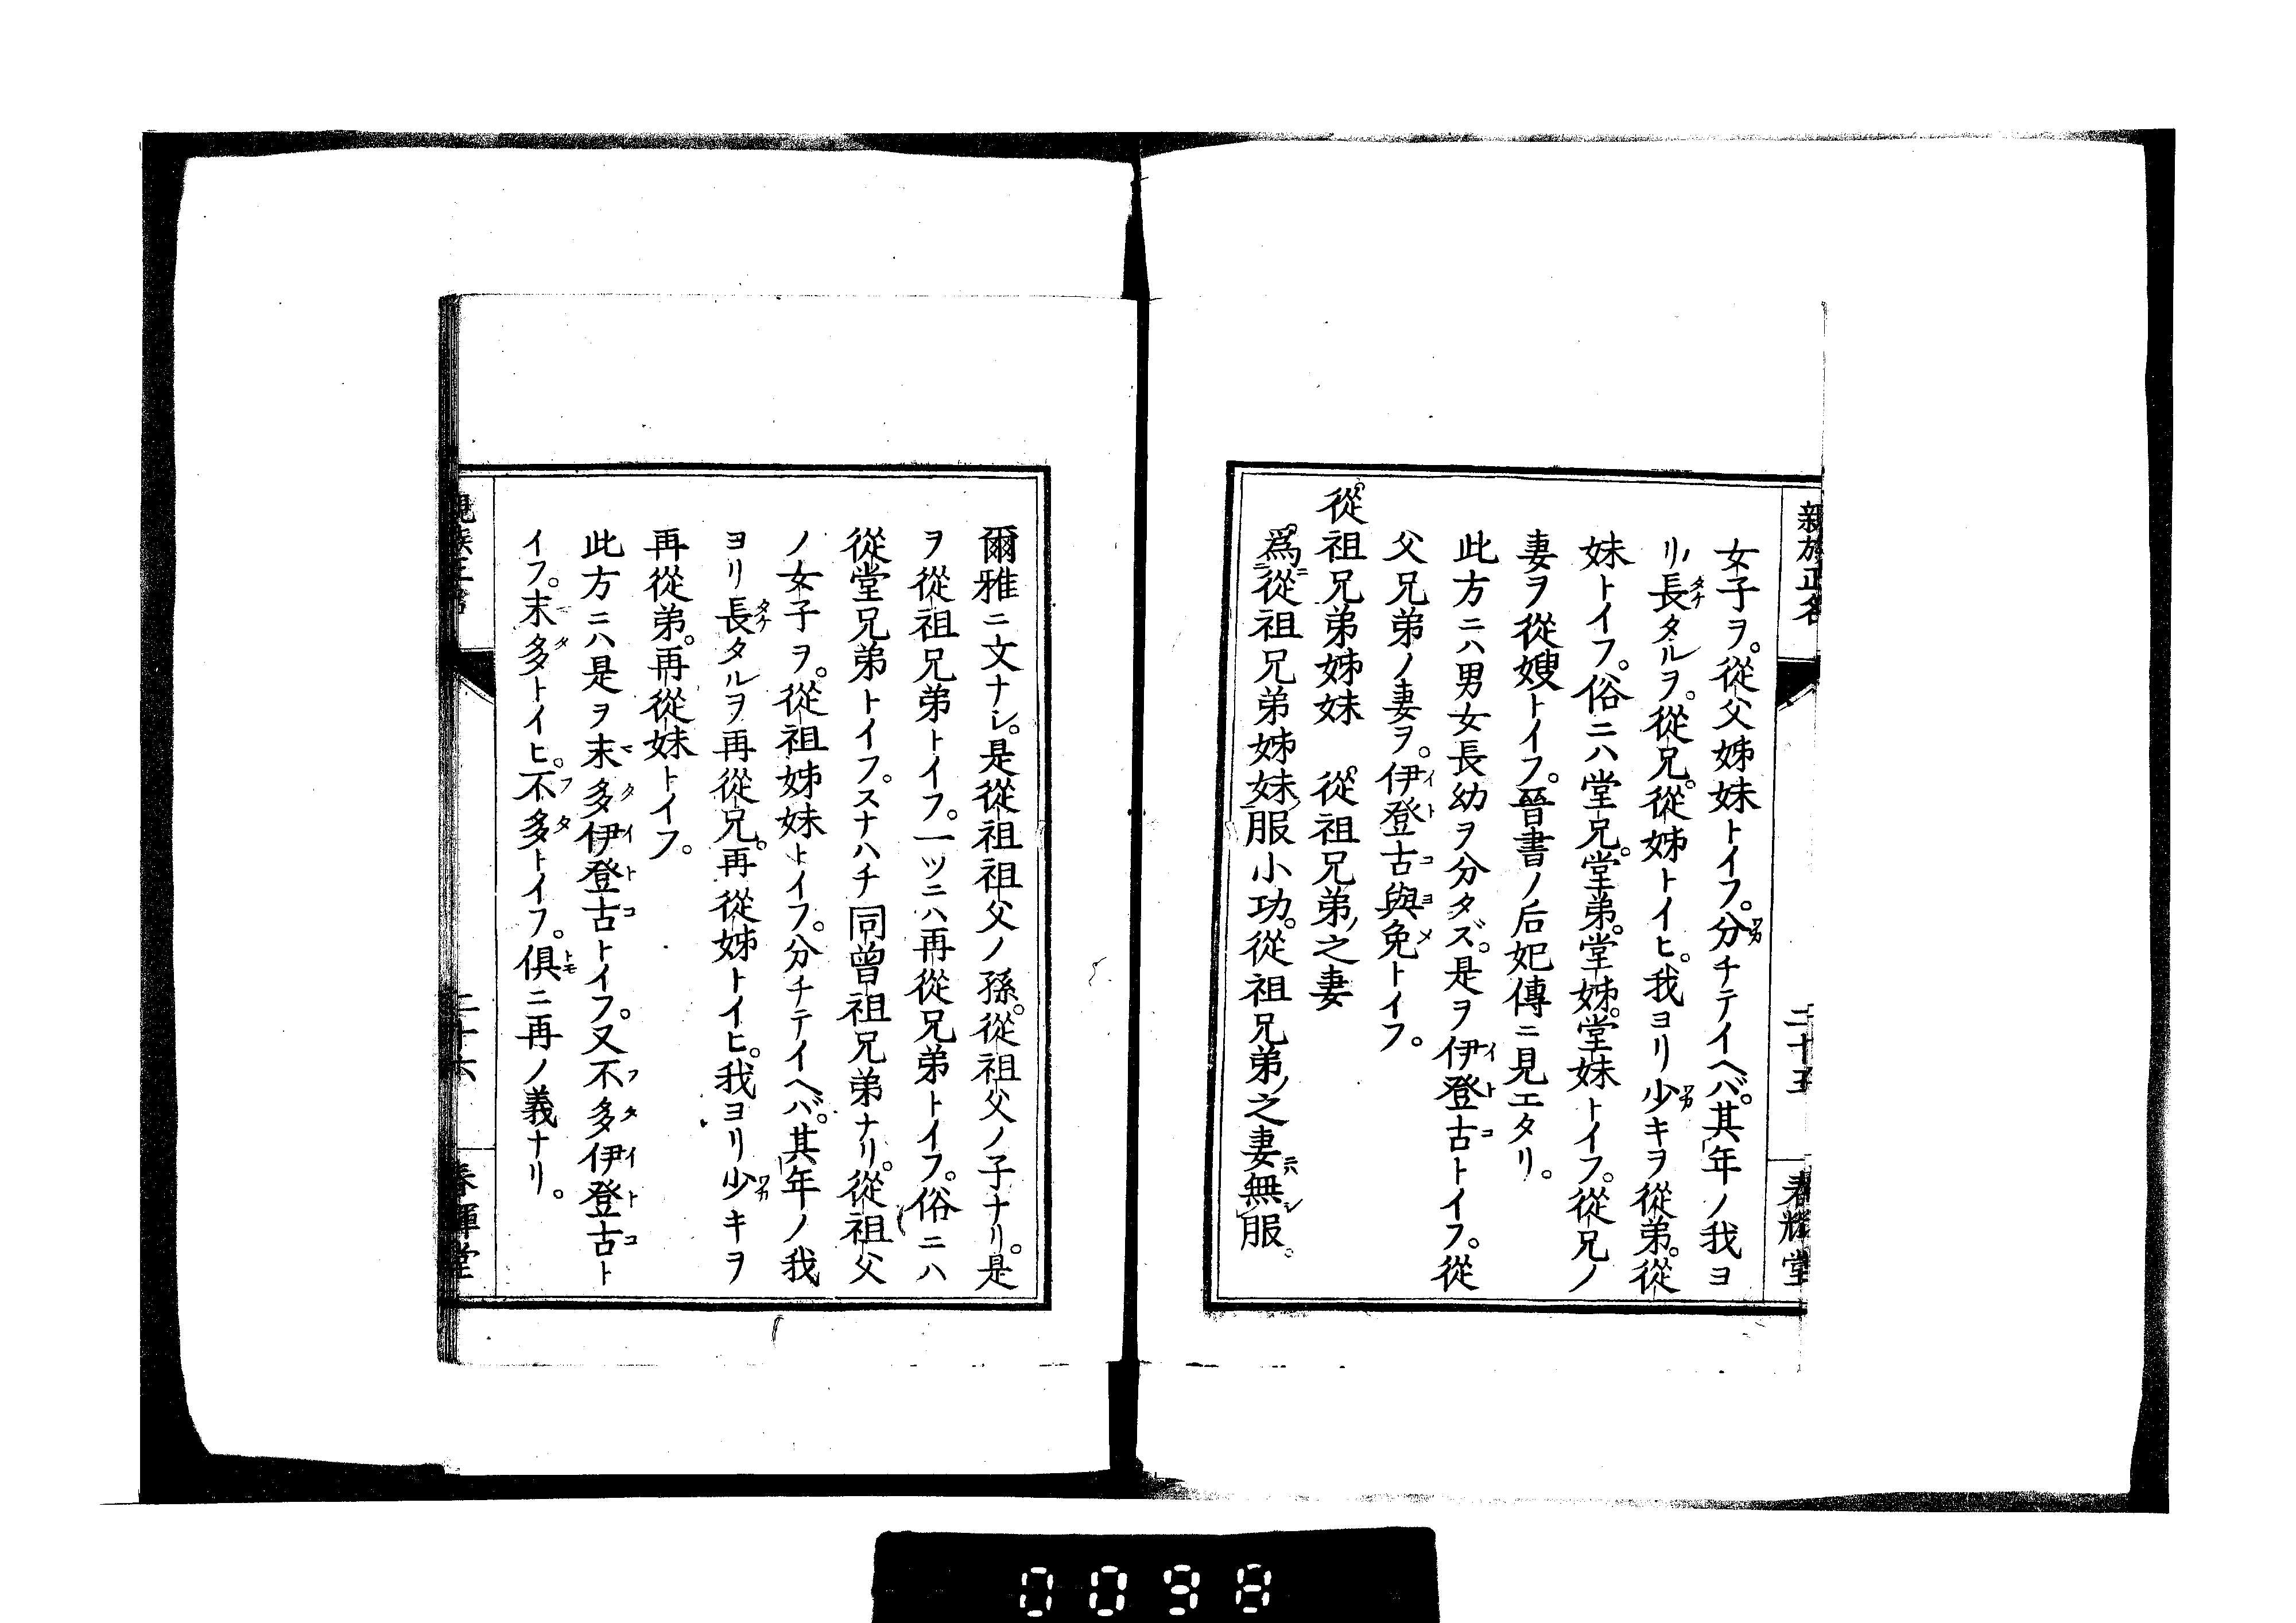 親族正名
二十五
春輝堂
女子ヲ。從父姊妹トイフ。分チテイヘバ。其年ノ我ヨ
リ長タルヲ。從兄。從姊トイヒ。我ヨリ少キヲ從弟。從
妹トイフ。俗ニハ堂兄。堂弟。堂姊。堂妹トイフ。從兄ノ
妻ヲ從嫂トイフ。晉書ノ后妃傳ニ見エタリ。
此方ニハ男女長幼ヲ分タズ。是ヲ伊登古トイフ。從
父兄弟ノ妻ヲ。伊登古與免トイフ。
從祖兄弟姊妹 從祖兄弟ノ之妻
爲ニ從祖兄弟姊妹ノ服小功。從祖兄弟ノ之妻ニハ無シ服。
爾雅ニ文ナシ。是從祖祖父ノ孫。從祖父ノ子ナリ。是
ヲ從祖兄弟トイフ。一ツニハ再從兄弟トイフ。俗ニハ
從堂兄弟トイフ。スナハチ同曾祖兄弟ナリ。從祖父
ノ女子ヲ。從祖姊妹トイフ。分チテイヘバ。其年ノ我
ヨリ長タルヲ再從兄。再從姊トイヒ。我ヨリ少キヲ
再從弟。再從妹トイフ。
此方ニハ是ヲ末多伊登古トイフ。又不多伊登古ト
イフ。末多トイヒ。不多トイフ。俱ニ再ノ義ナリ。
親族正名
二十六
春輝堂
0098